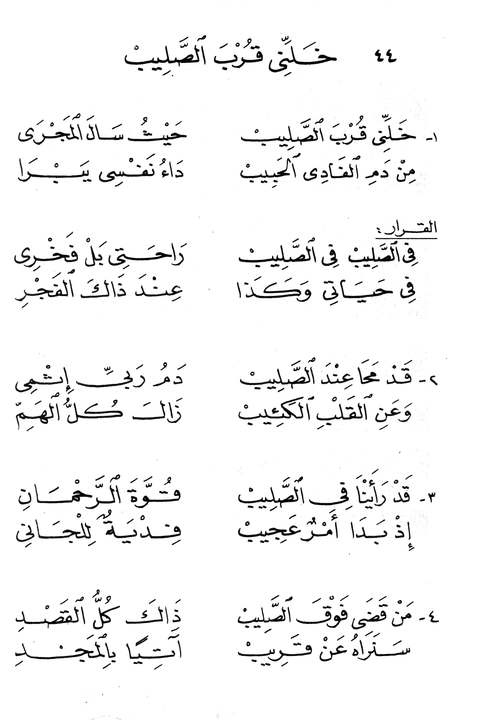 ٤٤ خَلِّنِى قُرْبَ الصَّلِيبْ
١- خَلِّنِى قُرْبَ الصَّلِيبْ حَيْثُ سَالَ الْمَجْرَى
مِنْ دَمِ الفَادِى الْحَبِيبْ دَاءُ نَفْسِى يَبْرَا
القرار:
فِى الصَّلِيبْ فِى الصَّلِيبْ رَاحَتِى بَلْ فَخْرِى
فِى حَيَاتِى وَكَذَا عِنْدَ ذَاكَ الْفَجْرِ
٢- قَدْ مَحَا عِنْدَ الصَّلِيبْ دَمُ رَبِّى إِثْمِى
وَعَنِ القَلْبِ الكَئِيبْ زَالَ كُلُّ الْهَمِّ
٣- قَدْ رَأَيْنَا فِى الصَّلِيبْ قُوَّةَ الرَّحْمَانِ
إِذْ بَدَا أَمْرٌ عَجِيبْ فِدْيَةٌ لِلْجَانِي
٤- مَنْ قَضَى فَوْقَ الصَّلِيبْ ذَاكَ كُلُّ القَصْدِ
سَنَرَاهُ عَنْ قَرِيبْ آتِيًا بِالْمَجْدِ